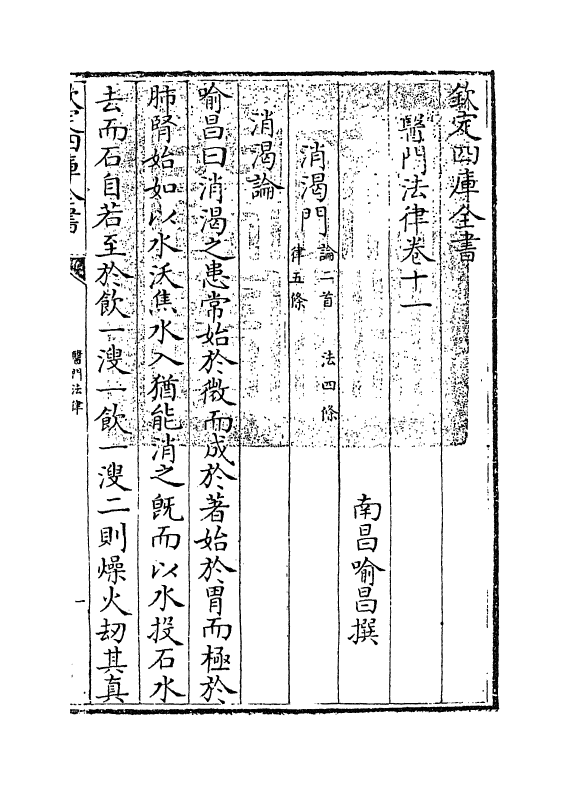 欽定四庫全書
醫門法律卷十一
南昌喻昌撰
消渴門
論二首 法四條
律五條
消渴論
喻昌曰消渴之患常始於微而成於著始於胃而極於
肺腎始如以水沃焦水入猶能消之既而以水投石水
去而石自若至於飲一溲一飲一溲二則燥火刼其真
欽定四庫全書
醫門法律
一